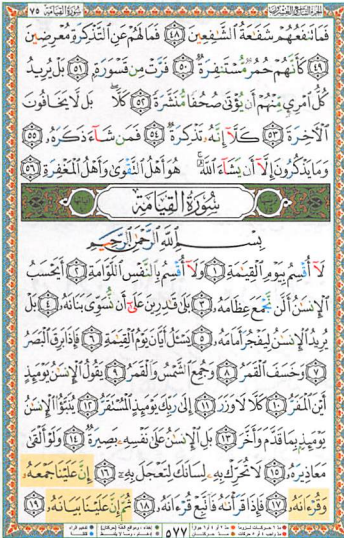 سُورَةُ القِيَامَةِ ٧٥
فَمَا تَنفَعُهُمْ شَفَٰعَةُ ٱلشَّٰفِعِينَ ٤٨ فَمَا لَهُمْ عَنِ ٱلتَّذْكِرَةِ مُعْرِضِينَ
٤٩ كَأَنَّهُمْ حُمُرٌ مُّسْتَنفِرَةٌ ٥٠ فَرَّتْ مِن قَسْوَرَةٍ ٥١ بَلْ يُرِيدُ
كُلُّ ٱمْرِئٍ مِّنْهُمْ أَن يُؤْتَىٰ صُحُفًا مُّنَشَّرَةً ٥٢ كَلَّا بَل لَّا يَخَافُونَ
ٱلْءَاخِرَةَ ٥٣ كَلَّا إِنَّهُۥ تَذْكِرَةٌ ٥٤ فَمَن شَآءَ ذَكَرَهُۥ ٥٥
وَمَا يَذْكُرُونَ إِلَّا أَن يَشَآءَ ٱللَّهُ هُوَ أَهْلُ ٱلتَّقْوَىٰ وَأَهْلُ ٱلْمَغْفِرَةِ ٥٦
سُورَةُ القِيَامَةِ
بِسْمِ ٱللَّهِ ٱلرَّحْمَٰنِ ٱلرَّحِيمِ
لَآ أُقْسِمُ بِيَوْمِ ٱلْقِيَٰمَةِ ١ وَلَآ أُقْسِمُ بِٱلنَّفْسِ ٱللَّوَّامَةِ ٢ أَيَحْسَبُ
ٱلْإِنسَٰنُ أَلَّن نَّجْمَعَ عِظَامَهُۥ ٣ بَلَىٰ قَٰدِرِينَ عَلَىٰٓ أَن نُّسَوِّىَ بَنَانَهُۥ ٤ بَلْ
يُرِيدُ ٱلْإِنسَٰنُ لِيَفْجُرَ أَمَامَهُۥ ٥ يَسْـَٔلُ أَيَّانَ يَوْمُ ٱلْقِيَٰمَةِ ٦ فَإِذَا بَرِقَ ٱلْبَصَرُ
٧ وَخَسَفَ ٱلْقَمَرُ ٨ وَجُمِعَ ٱلشَّمْسُ وَٱلْقَمَرُ ٩ يَقُولُ ٱلْإِنسَٰنُ يَوْمَئِذٍ
أَيْنَ ٱلْمَفَرُّ ١٠ كَلَّا لَا وَزَرَ ١١ إِلَىٰ رَبِّكَ يَوْمَئِذٍ ٱلْمُسْتَقَرُّ ١٢ يُنَبَّؤُا۟ ٱلْإِنسَٰنُ
يَوْمَئِذٍۭ بِمَا قَدَّمَ وَأَخَّرَ ١٣ بَلِ ٱلْإِنسَٰنُ عَلَىٰ نَفْسِهِۦ بَصِيرَةٌ ١٤ وَلَوْ أَلْقَىٰ
مَعَاذِيرَهُۥ ١٥ لَا تُحَرِّكْ بِهِۦ لِسَانَكَ لِتَعْجَلَ بِهِۦٓ ١٦ إِنَّ عَلَيْنَا جَمْعَهُۥ
وَقُرْءَانَهُۥ ١٧ فَإِذَا قَرَأْنَٰهُ فَٱتَّبِعْ قُرْءَانَهُۥ ١٨ ثُمَّ إِنَّ عَلَيْنَا بَيَانَهُۥ ١٩
٥٧٧